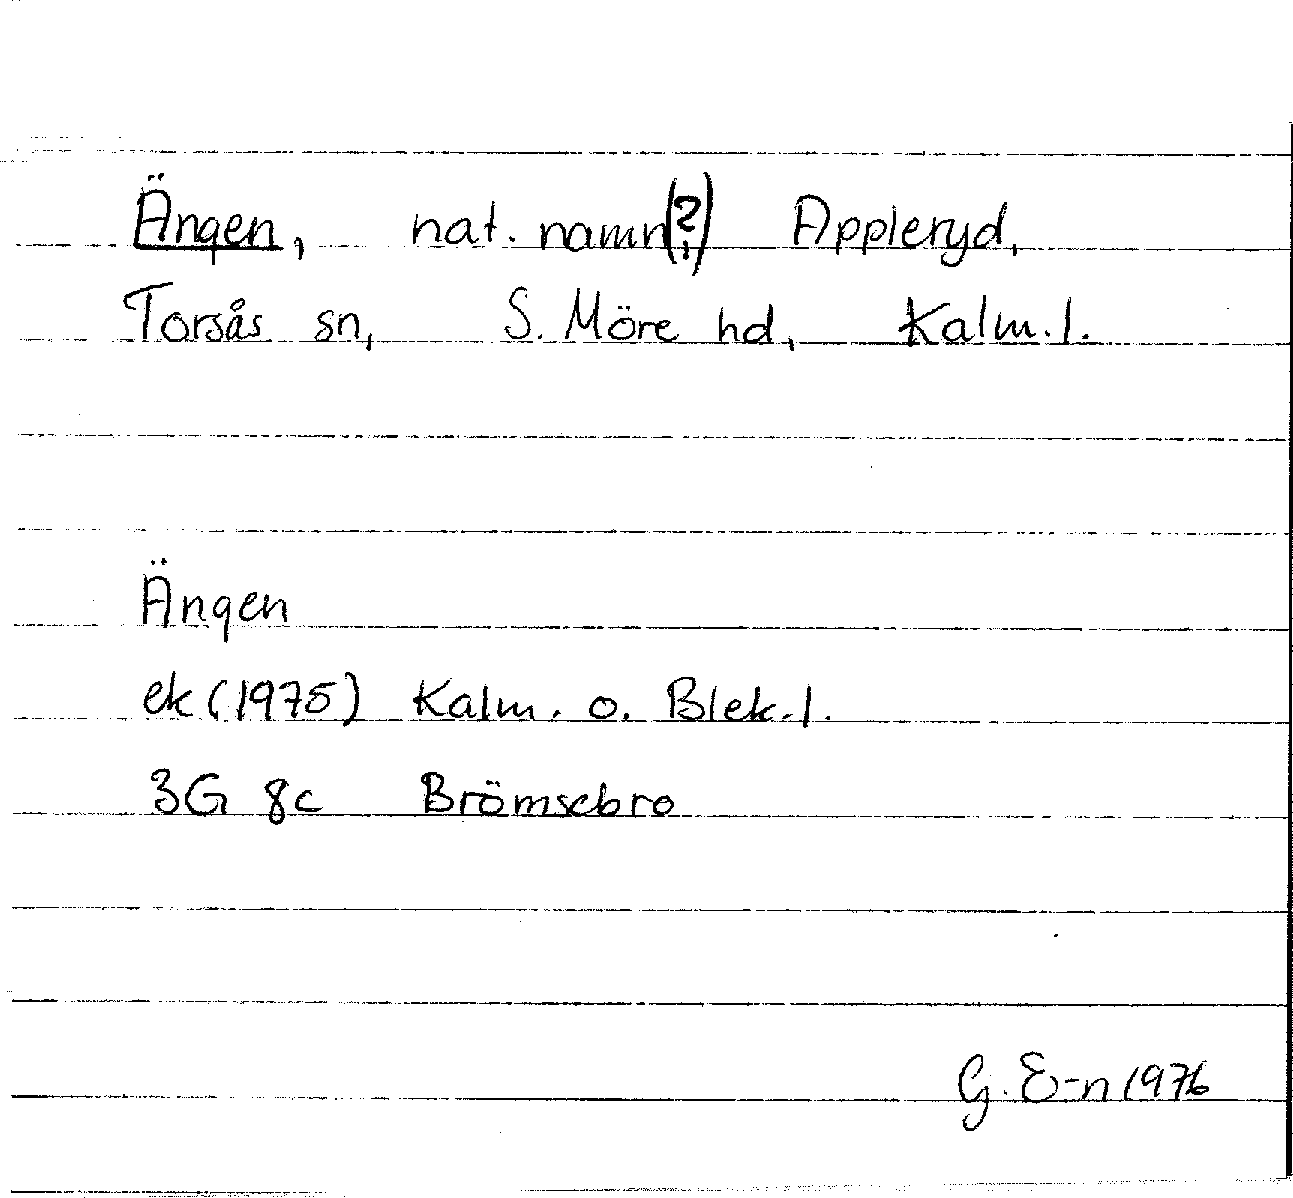 Ängen, nat. namn(?) Appleryd,
Torsås sn, S. Möre hd, Kalm. l.
Ängen
ek (1975) Kalm. o. Blek. l.
3G 8c Brömsebro
G. E-n 1976